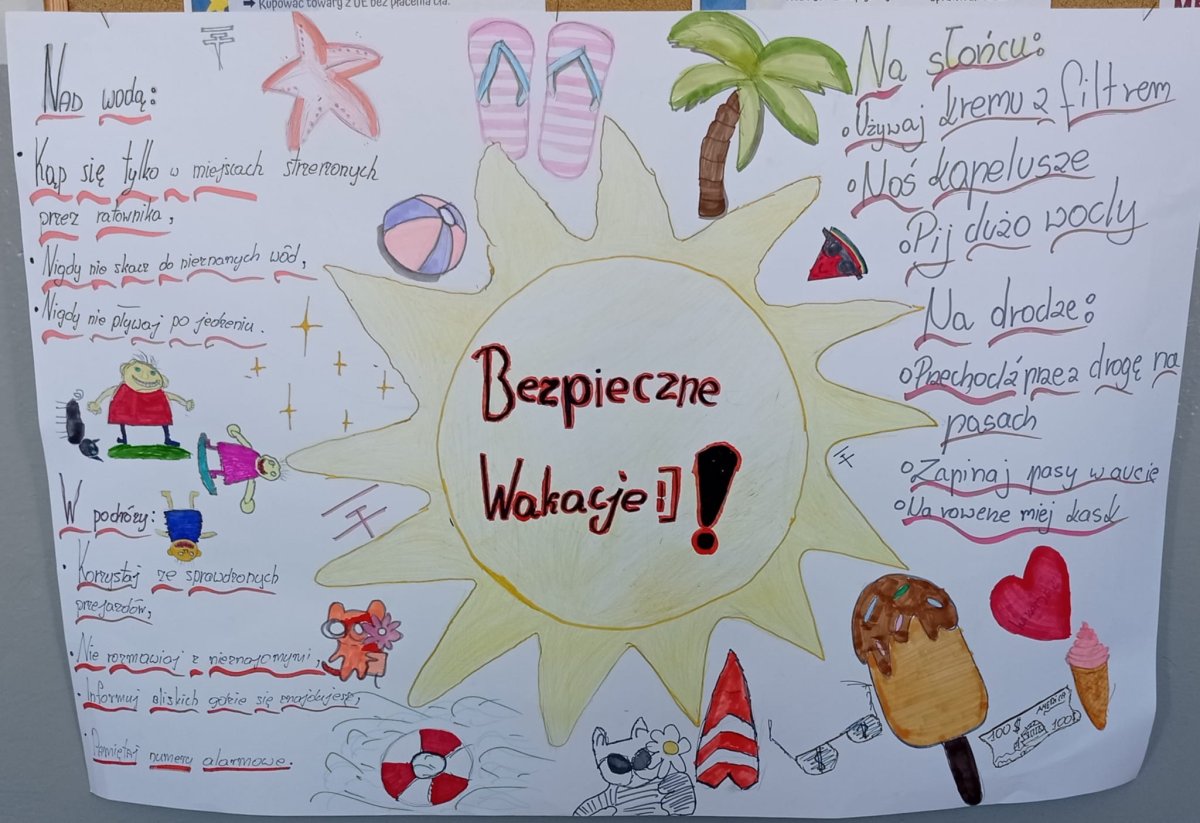 ➡ Kupować towary z UE bez płacenia cła.
Nad wodą:
• Kąp się tylko w miejscach strzeżonych
przez ratownika,
• Nigdy nie skacz do nieznanych wód,
• Nigdy nie pływaj po jedzeniu.
W podróży:
• Korzystaj ze sprawdzonych
przejazdów,
• Nie rozmawiaj z nieznajomymi,
• Informuj bliskich gdzie się znajdujesz,
• Pamiętaj numery alarmowe.
Bezpieczne
Wakacje :] !
Na słońcu:
Używaj kremu z filtrem
Noś kapelusze
Pij dużo wody
Na drodze:
Przechodź przez drogę na
pasach
Zapinaj pasy w aucie
Na rowerze miej kask
100$
100$